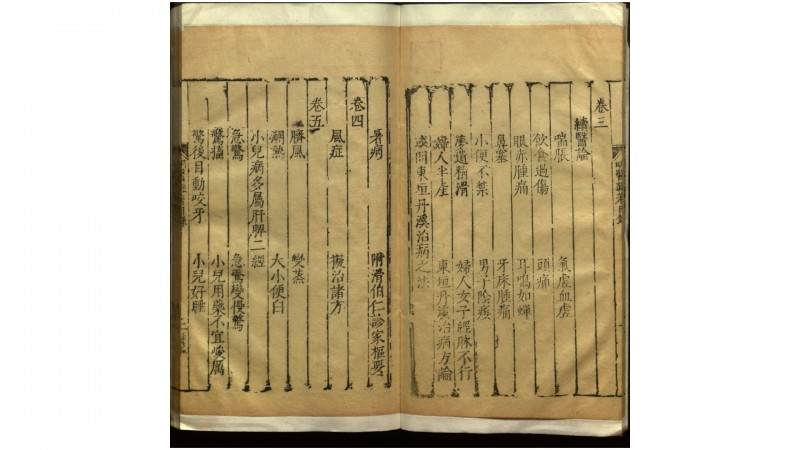 卷三
續醫論
喘脹 氣虛血虛
飲食過傷 頭痛
眼赤腫痛 耳鳴如蟬
鼻塞 牙床腫痛
小便不禁 男子陰痿
夢遺精滑 婦人女子經脉不行
婦人半產 東垣丹溪治病方論
東垣丹溪治病之法
暑病 附滑伯仁診家樞要
卷四
風症 擬治諸方
卷五
臍風 變蒸
潮熱 大小便白
小兒病多屬肝脾二經
急驚 急驚變慢驚
驚搐 小兒用藥不宜峻厲
驚後目動咬牙 小兒好睡